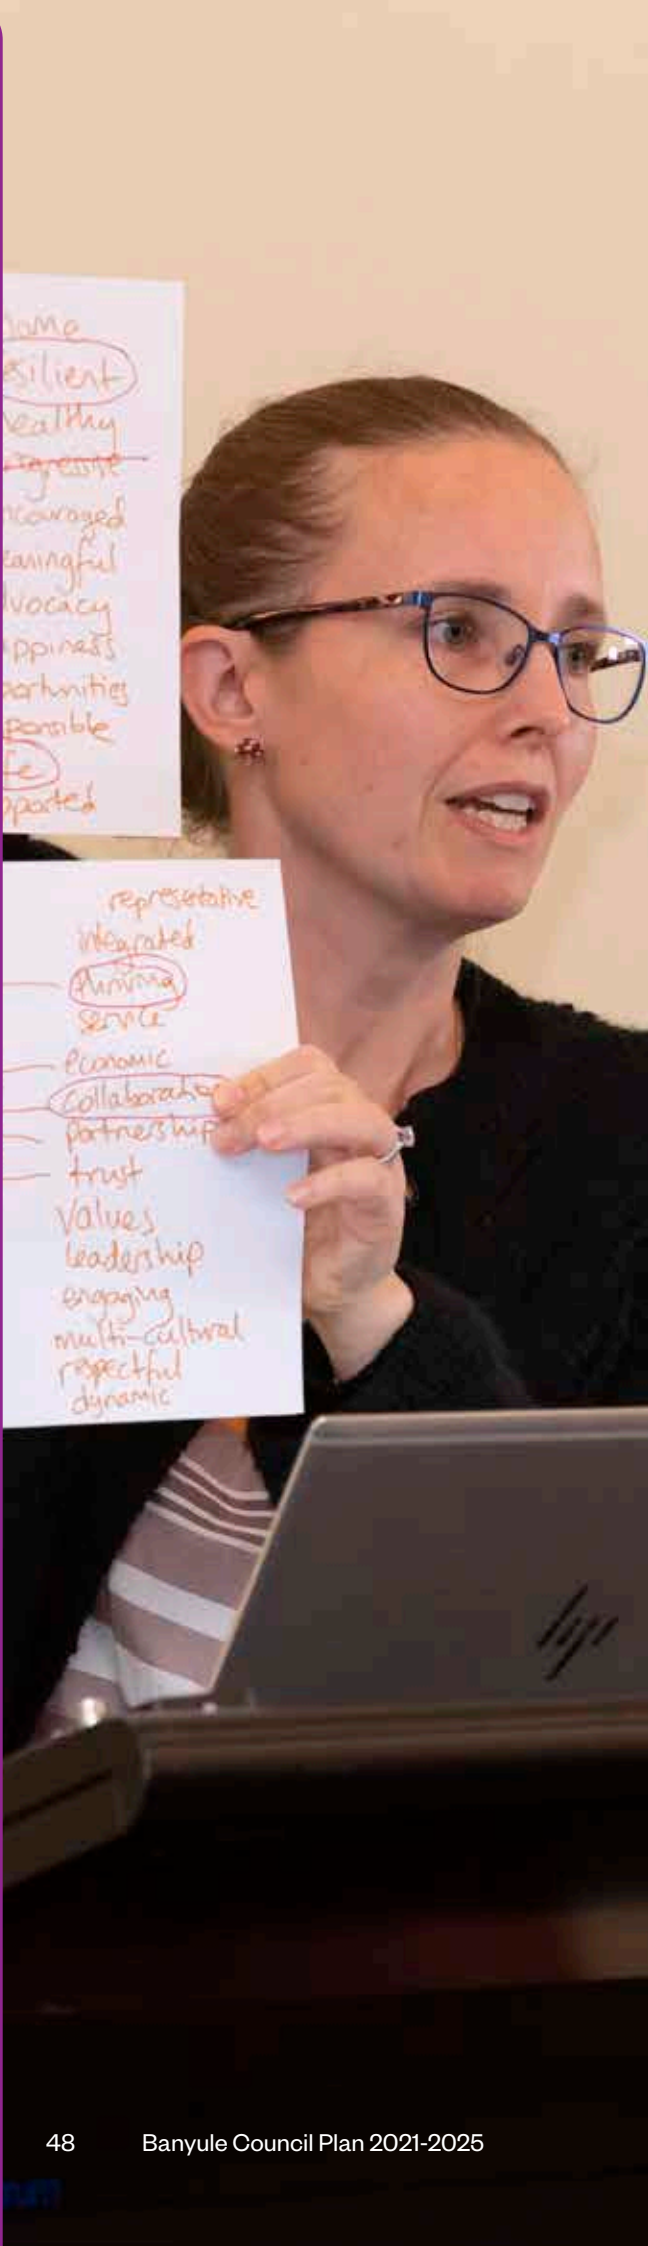 esilient
ealthy
ncouraged
eaningful
dvocacy
ppiness
portunities
ponsible
fe
pported
representative
integrated
thriving
service
economic
collaborative
partnership
trust
values
leadership
engaging
multi-cultural
respectful
dynamic
hp
48 Banyule Council Plan 2021-2025